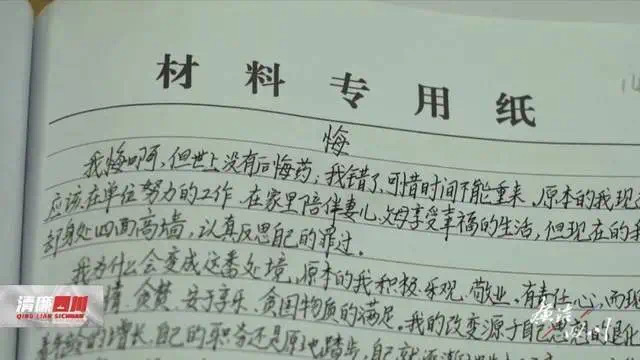 材料专用纸
悔
我悔啊,但世上没有后悔药;我错了,可惜时间不能重来。原本的我现
应该在单位努力的工作,在家里陪伴妻儿、父母享受幸福的生活,但现在的我
却身处四面高墙,认真反思自己的罪过。
我为什么会变成这番处境,原本的我积极、乐观、敬业、有责任心,而现
情、贪婪、安于享乐、贪图物质的满足。我的改变源于自己思想的退化
着年龄的增长,自己的职务还是原地踏步,自己就逐渐
清廉四川
QING LIAN SICHUAN
廉洁四川